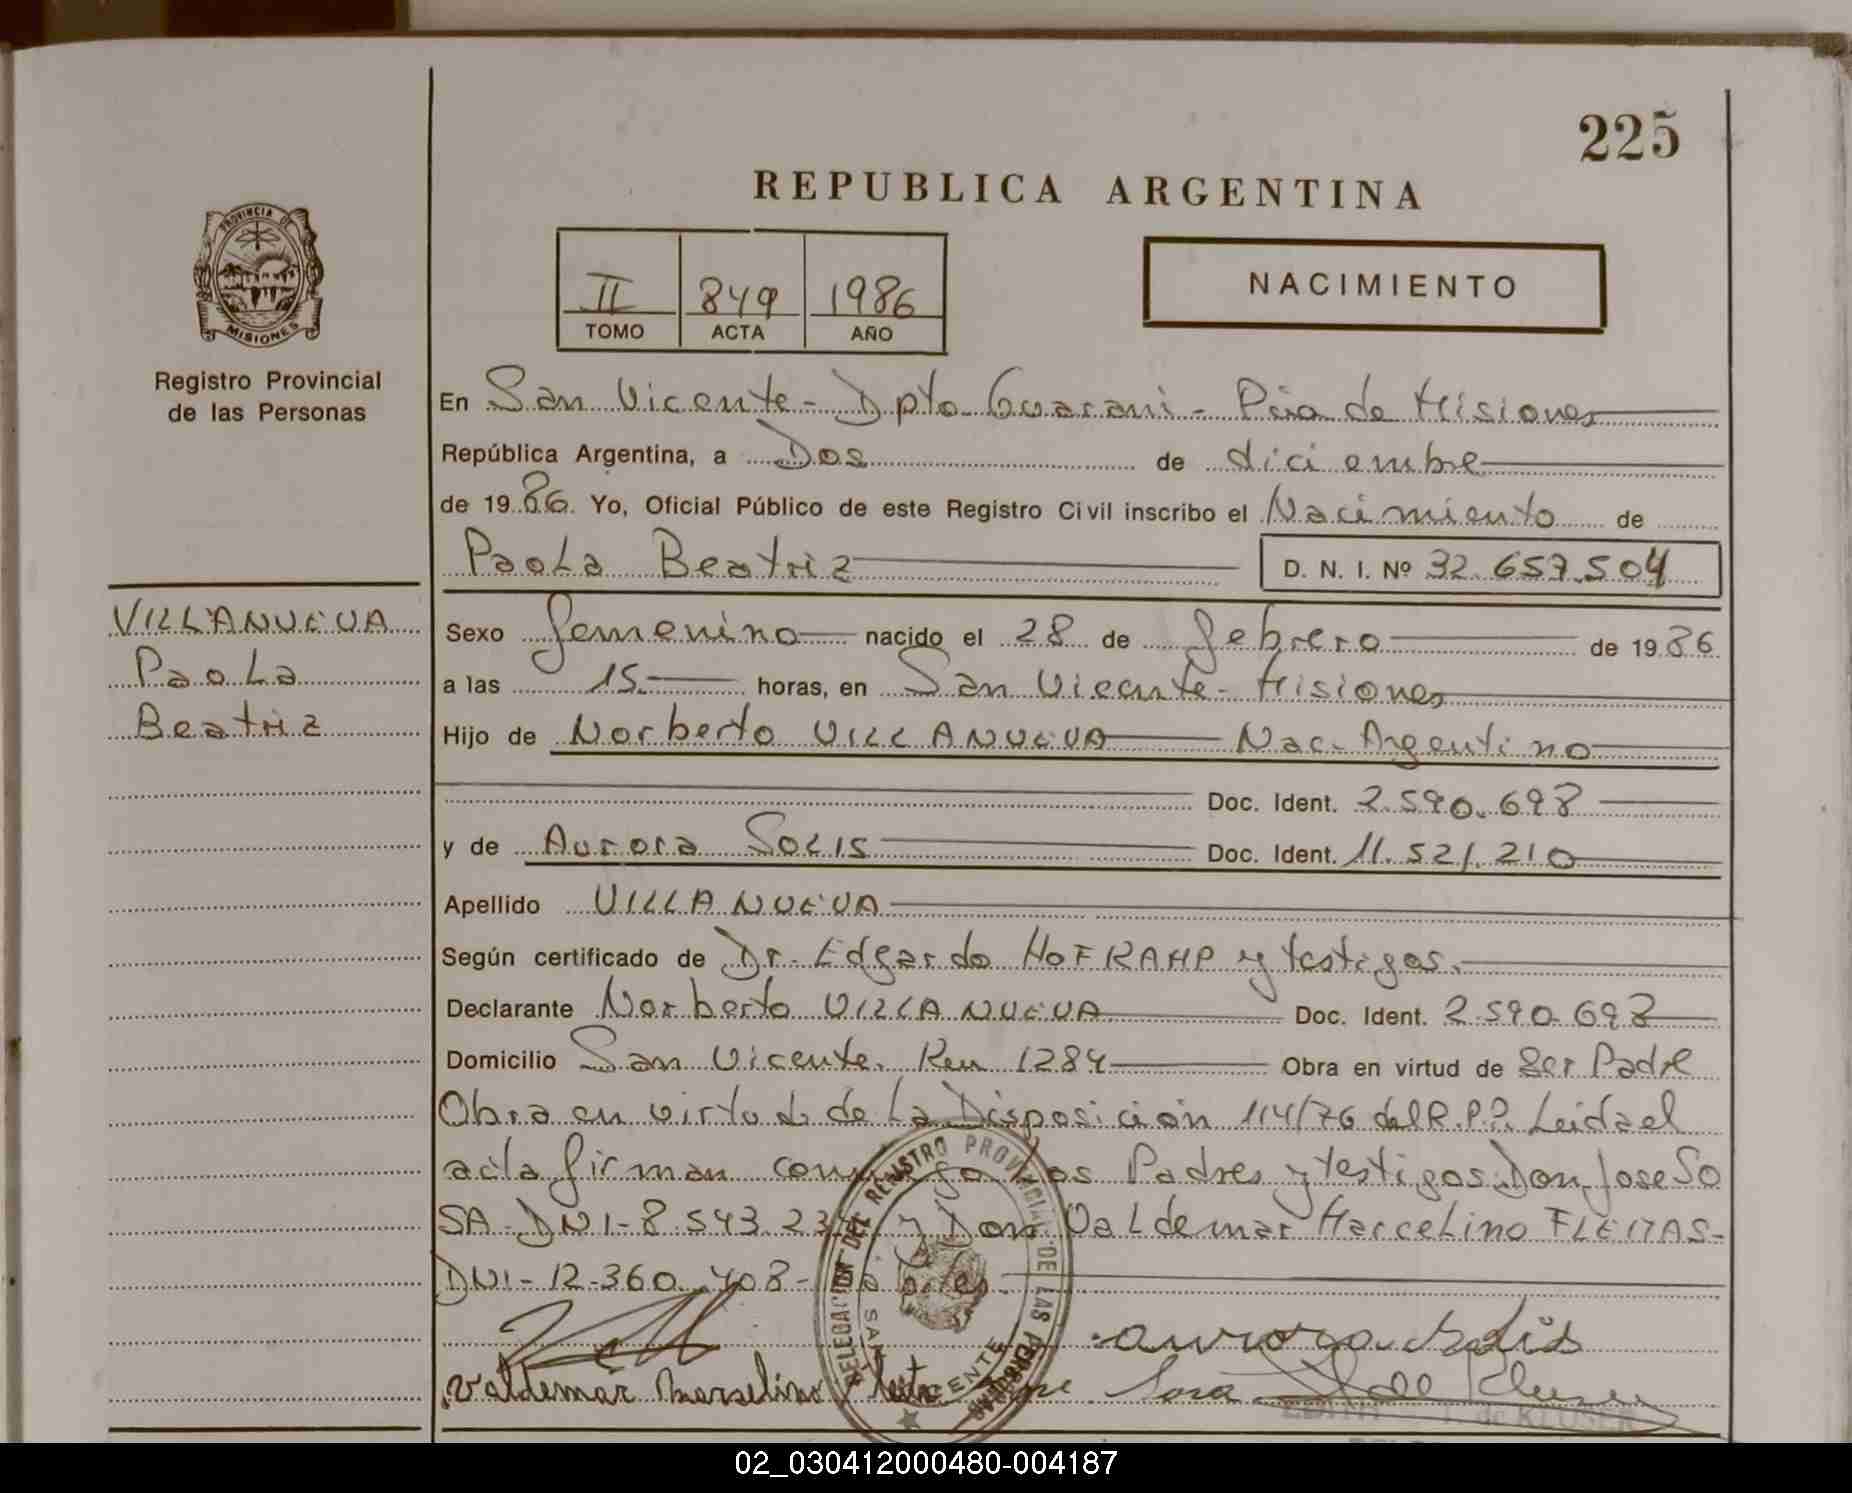 225
REPUBLICA ARGENTINA
PROVINCIA DE
MISIONES
Registro Provincial
de las Personas
II 849 1986
TOMO ACTA AÑO
NACIMIENTO
En San Vicente - Dpto Guarani - Pcia de Misiones
República Argentina, a Dos de diciembre
de 1986. Yo, Oficial Público de este Registro Civil inscribo el Nacimiento de
Paola Beatriz D. N. I. Nº 32.657.504
VILLANUEVA
Paola
Beatriz
Sexo femenino nacido el 28 de febrero de 1986
a las 15.- horas, en San Vicente - Misiones
Hijo de Norberto VILLANUEVA Nac. Argentino
Doc. Ident. 2.590.698
y de Aurora SOLIS Doc. Ident. 11.521.210
Apellido VILLANUEVA
Según certificado de Dr. Edgardo HOFRAHP y testigos.
Declarante Norberto VILLANUEVA Doc. Ident. 2.590.698
Domicilio San Vicente. Km 1284 Obra en virtud de Ser Padre
Obra en virtud de La Disposición 114/76 del R.P.P. Leida el
acta firman conmigo los Padres y testigos Don Jose SO
SA - DNI - 8.543.23 y Don Valdemar Marcelino FLEITAS -
DNI - 12.360.408 -
aurora Solis
Valdemar Marselino Jose Sosa
DELEGACION DEL REGISTRO PROVINCIAL DE LAS PERSONAS
SAN VICENTE
EDITH de KLUSER
02_030412000480-004187